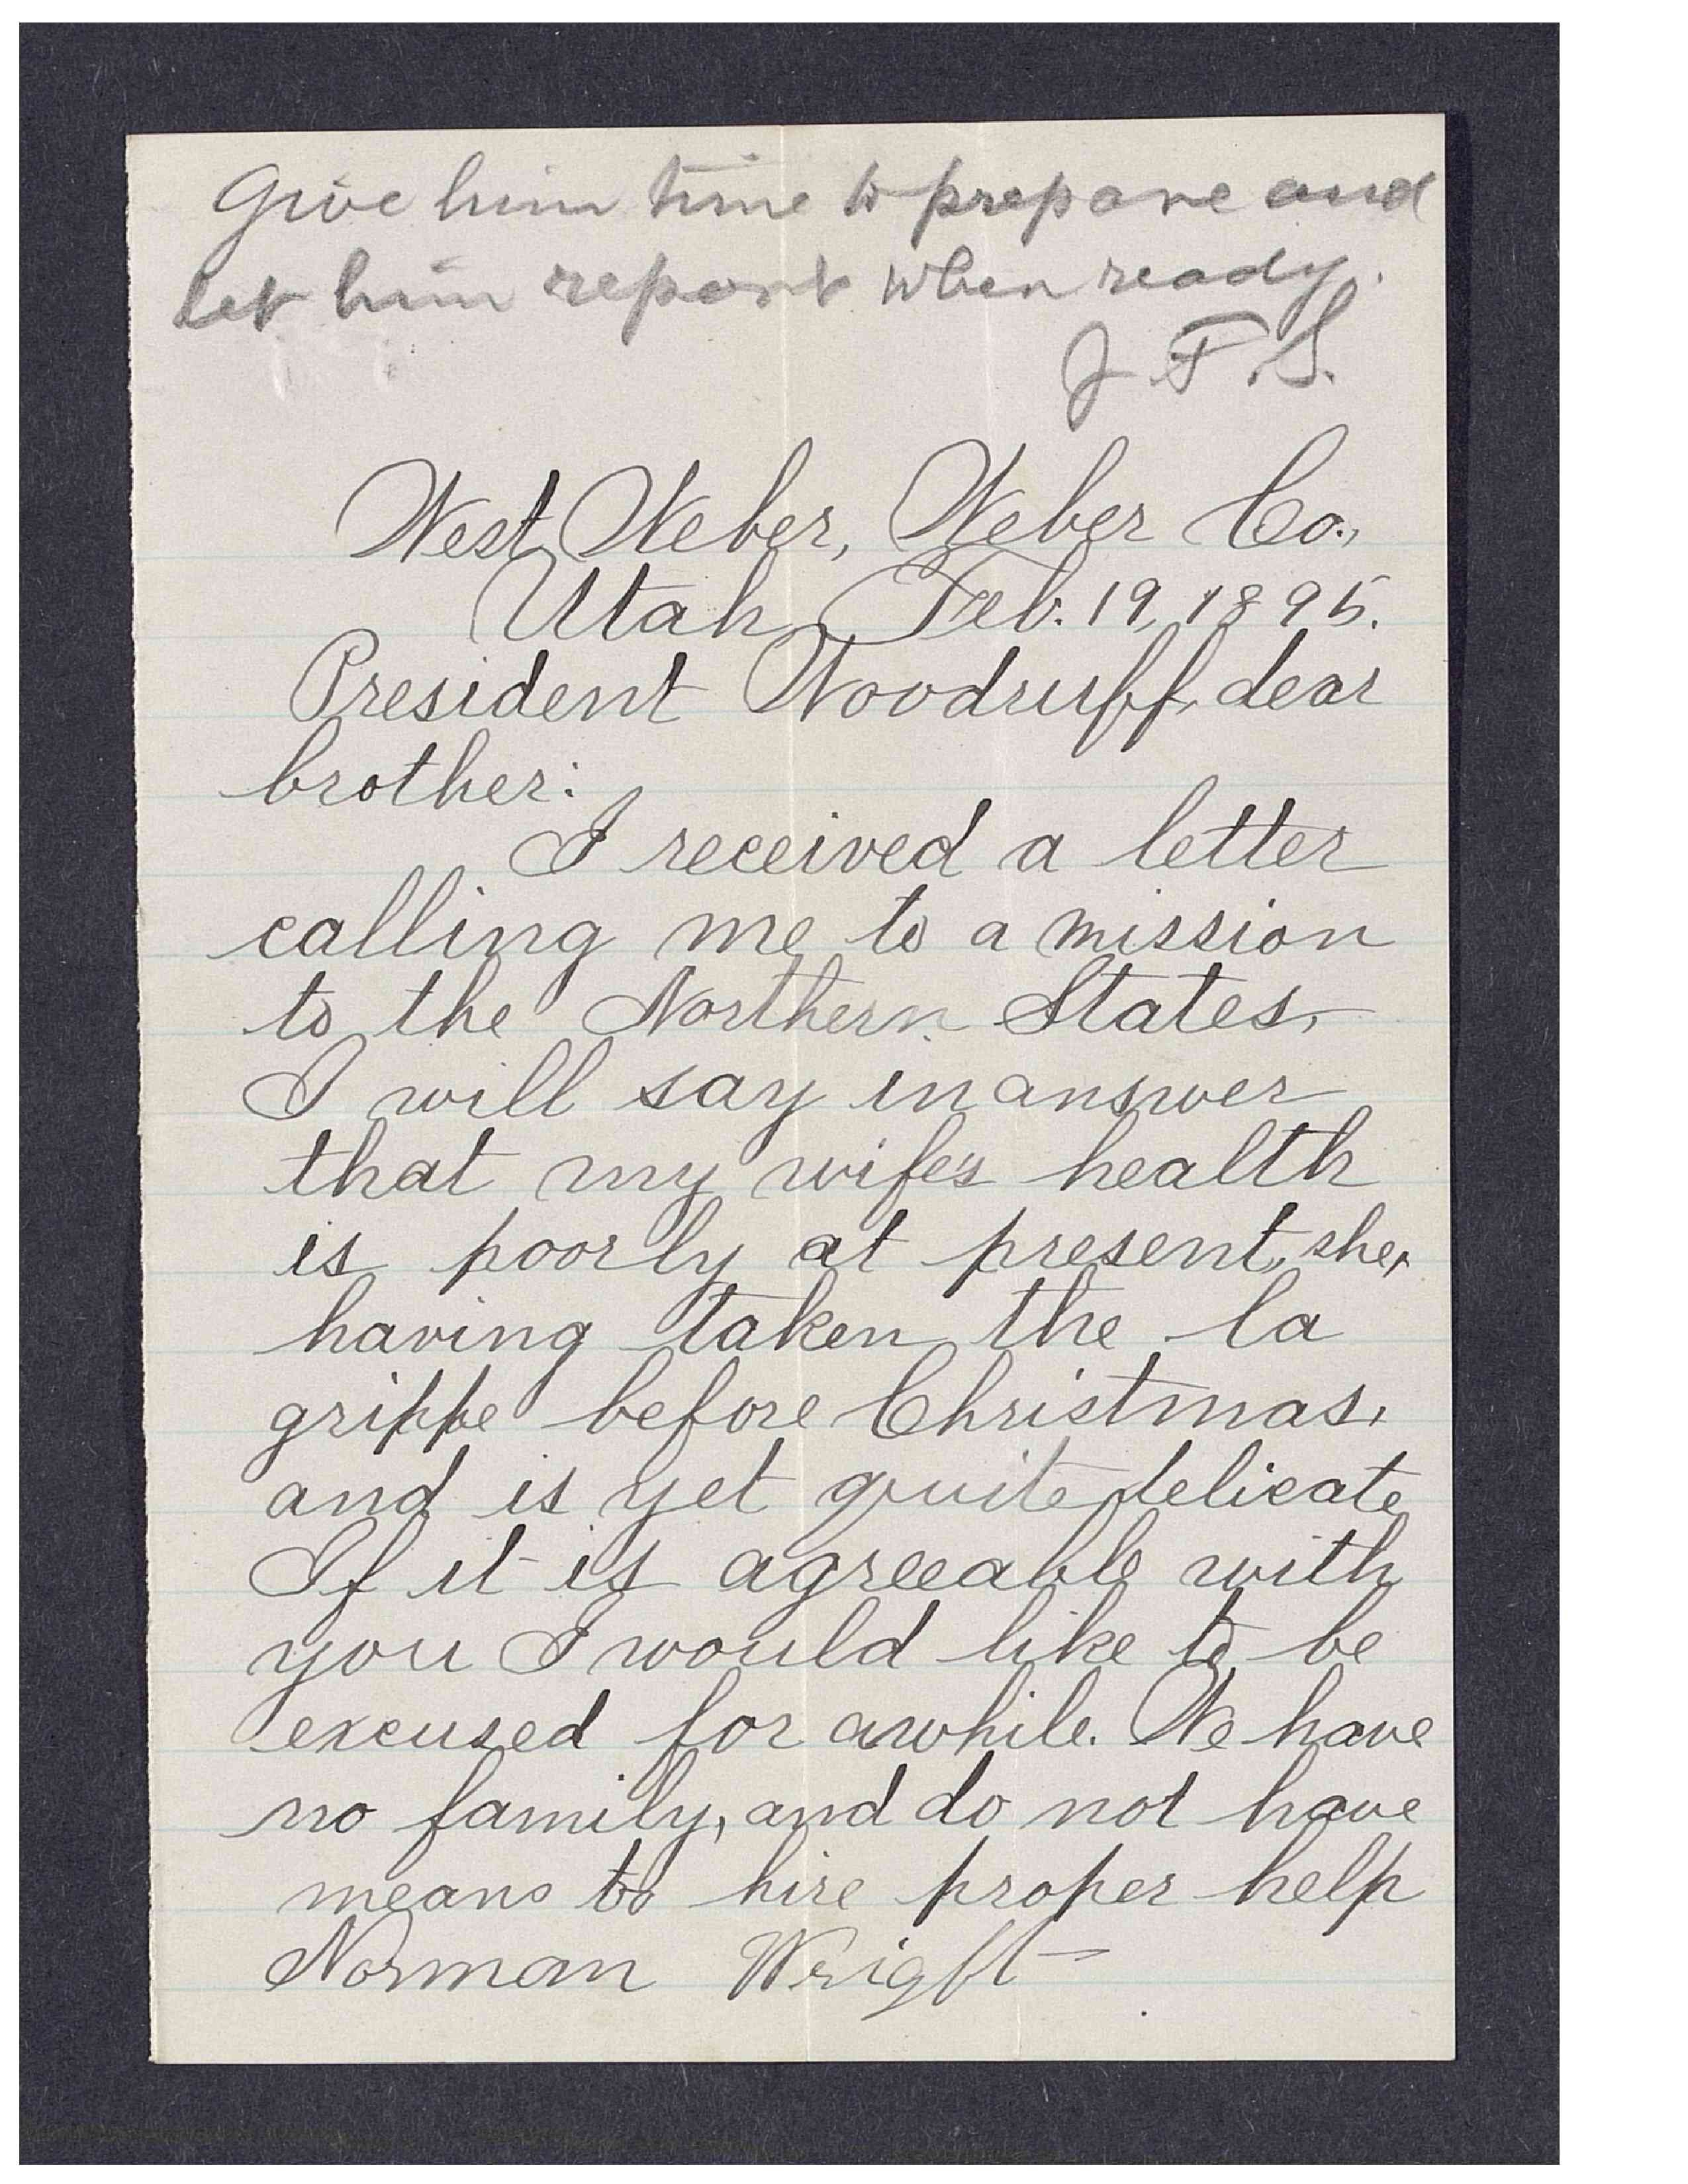 Give him time to prepare and
let him report when ready.
J F. S.
West Weber, Weber Co.,
Utah, Feb. 19, 1895.
President Woodruff, dear
brother:
I received a letter
calling me to a mission
to the Northern States.
I will say in answer
that my wife's health
is poorly at present, she,
having taken the la
grippe before Christmas,
and is yet quite delicate
If it is agreeable with
you I would like to be
excused for awhile. We have
no family, and do not have
means to hire proper help
Norman Wright